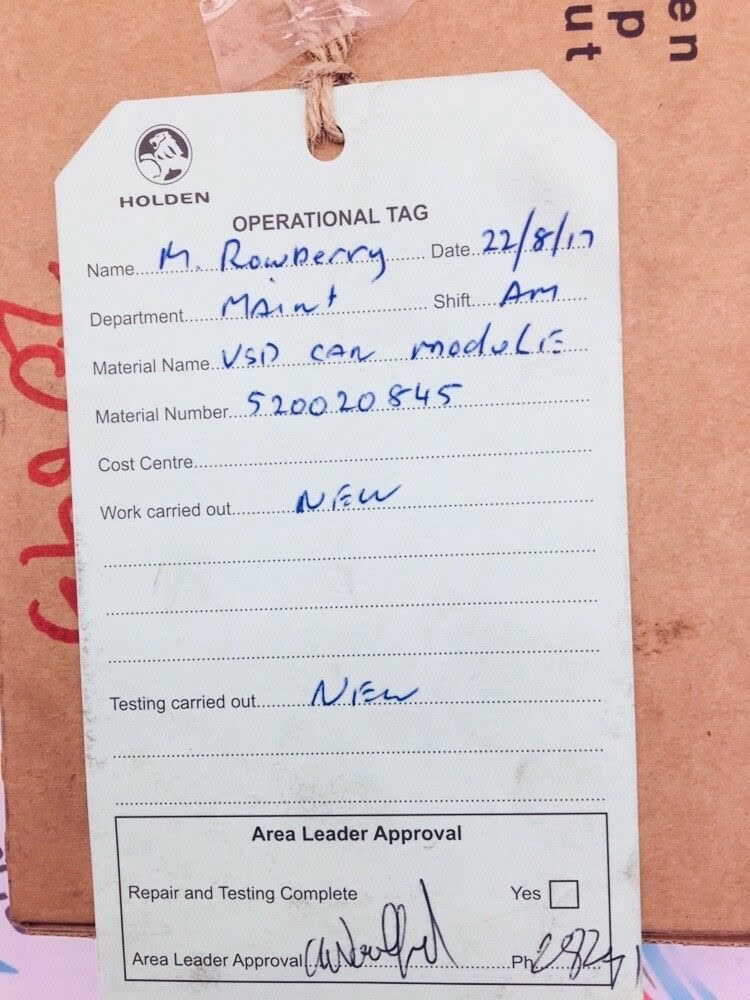 en
p
ut
HOLDEN
OPERATIONAL TAG
Name M. Rowberry Date 22/8/17
Department Maint Shift Am
Material Name VSD CAN modulE
Material Number 520020845
Cost Centre
Work carried out NEW
Testing carried out NEW
Area Leader Approval
Repair and Testing Complete Yes
Area Leader Approval Ph